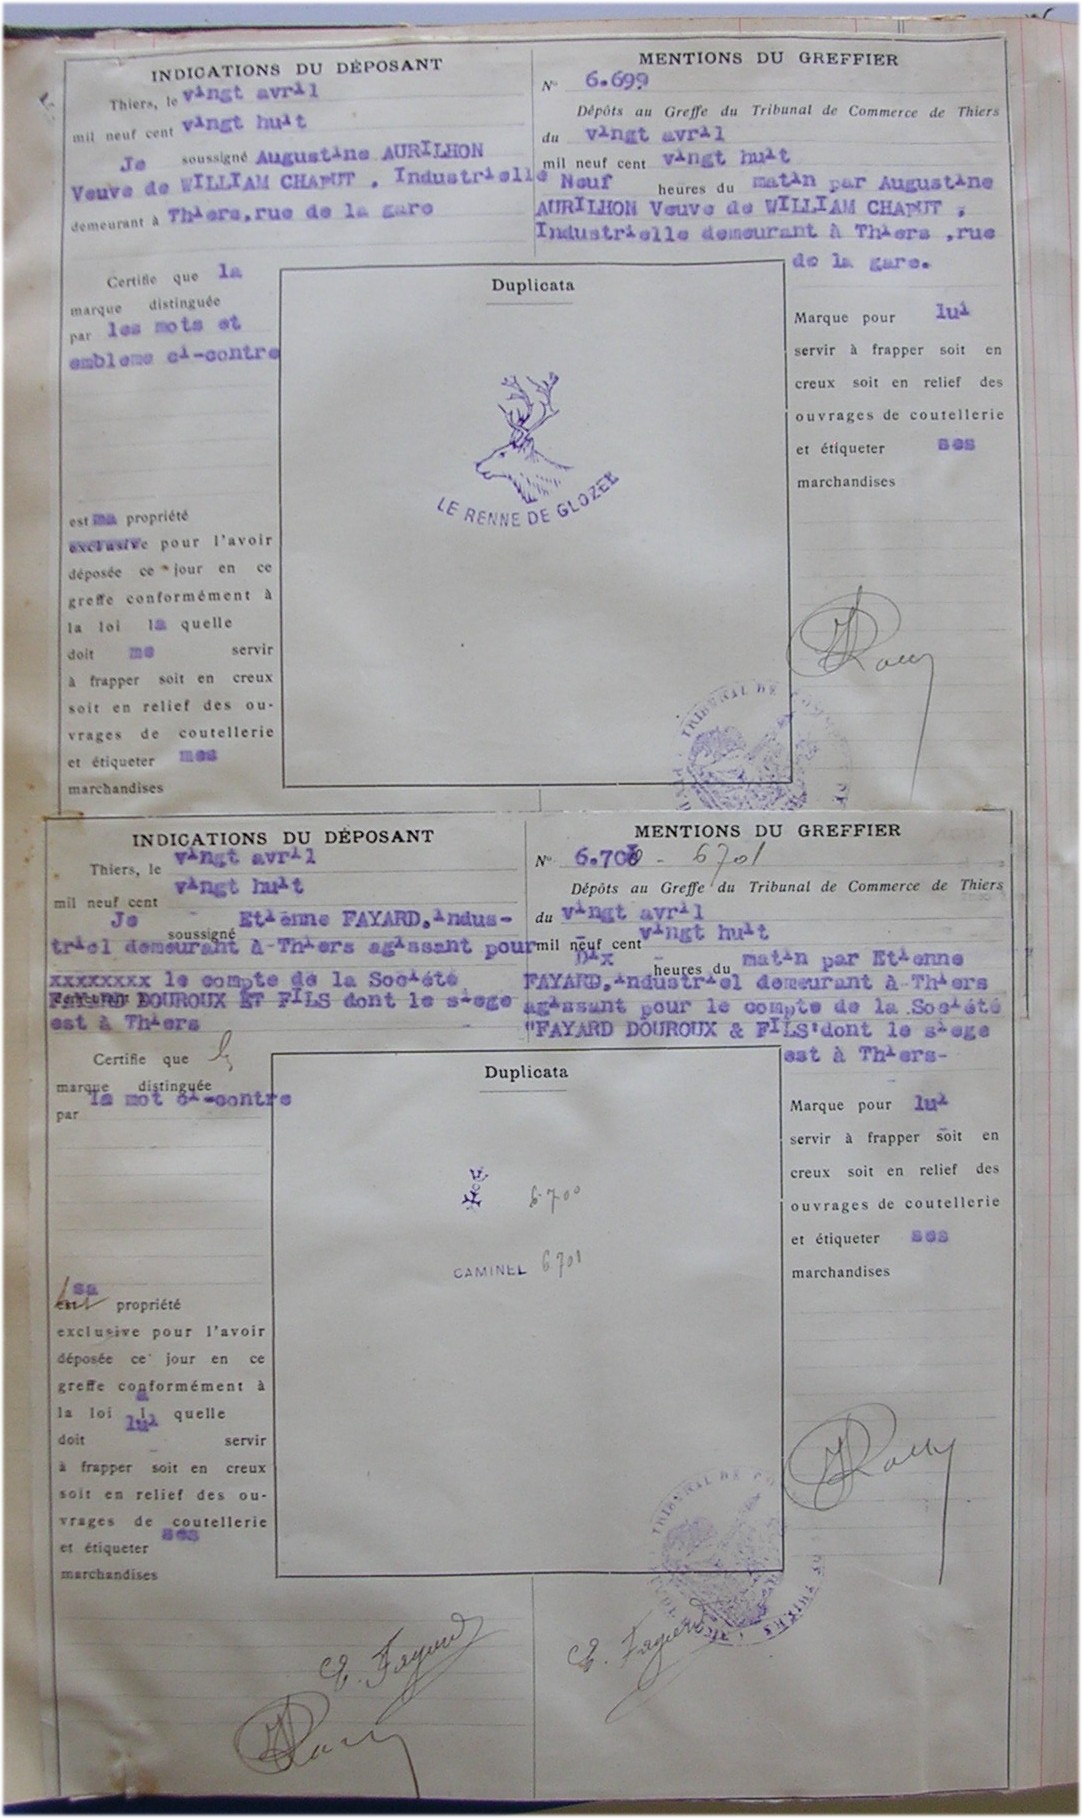 INDICATIONS DU DÉPOSANT
Thiers, le vingt avril
mil neuf cent vingt huit
Je soussigné Augustine AURILHON
Veuve de WILLIAM CHAPUT , Industrielle
demeurant à Thiers,rue de la gare
Certifie que la
marque distinguée
par les mots et
embleme ci-contre
est ma propriété
exclusive pour l'avoir
déposée ce jour en ce
greffe conformément à
la loi la quelle
doit me servir
à frapper soit en creux
soit en relief des ou-
vrages de coutellerie
et étiqueter mes
marchandises
Duplicata
LE RENNE DE GLOZEL
MENTIONS DU GREFFIER
N° 6.699
Dépôts au Greffe du Tribunal de Commerce de Thiers
du vingt avril
mil neuf cent vingt huit
Neuf heures du matin par Augustine
AURILHON Veuve de WILLIAM CHAPUT ,
Industrielle demeurant à Thiers ,rue
de la gare.
Marque pour lui
servir à frapper soit en
creux soit en relief des
ouvrages de coutellerie
et étiqueter ses
marchandises
TRIBUNAL DE COMM
INDICATIONS DU DÉPOSANT
Thiers, le vingt avril
mil neuf cent vingt huit
Je soussigné Etienne FAYARD,indus-
triel demeurant à-Thiers agissant pour
xxxxxxxx le compte de la Société
FAYARD DOUROUX ET FILS dont le siege
est à Thiers
Certifie que
marque distinguée
par la mot ci-contre
sa
est propriété
exclusive pour l'avoir
déposée ce jour en ce
greffe conformément à
la loi la quelle
doit lui servir
à frapper soit en creux
soit en relief des ou-
vrages de coutellerie
et étiqueter ses
marchandises
Duplicata
6700
CAMINEL 6701
MENTIONS DU GREFFIER
N° 6.700 - 6701
Dépôts au Greffe du Tribunal de Commerce de Thiers
du vingt avril
mil neuf cent vingt huit
Dix heures du matin par Etienne
FAYARD,industriel demeurant à-Thiers
agissant pour le compte de la Société
"FAYARD DOUROUX & FILS"dont le siege
est à Thiers-
Marque pour lui
servir à frapper soit en
creux soit en relief des
ouvrages de coutellerie
et étiqueter ses
marchandises
TRIBUNAL DE CO THIERS
E. Fayard
E. Fayard